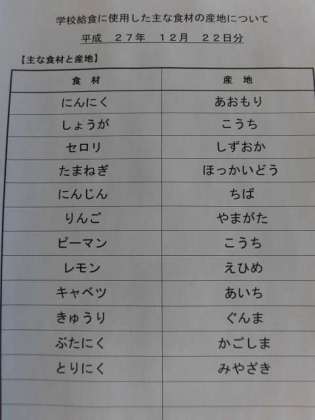 学校給食に使用した主な食材の産地について
平成　２７年　１２月　２２日分
【主な食材と産地】
食　材　産　地
にんにく　あおもり
しょうが　こうち
セロリ　しずおか
たまねぎ　ほっかいどう
にんじん　ちば
りんご　やまがた
ピーマン　こうち
レモン　えひめ
キャベツ　あいち
きゅうり　ぐんま
ぶたにく　かごしま
とりにく　みやざき